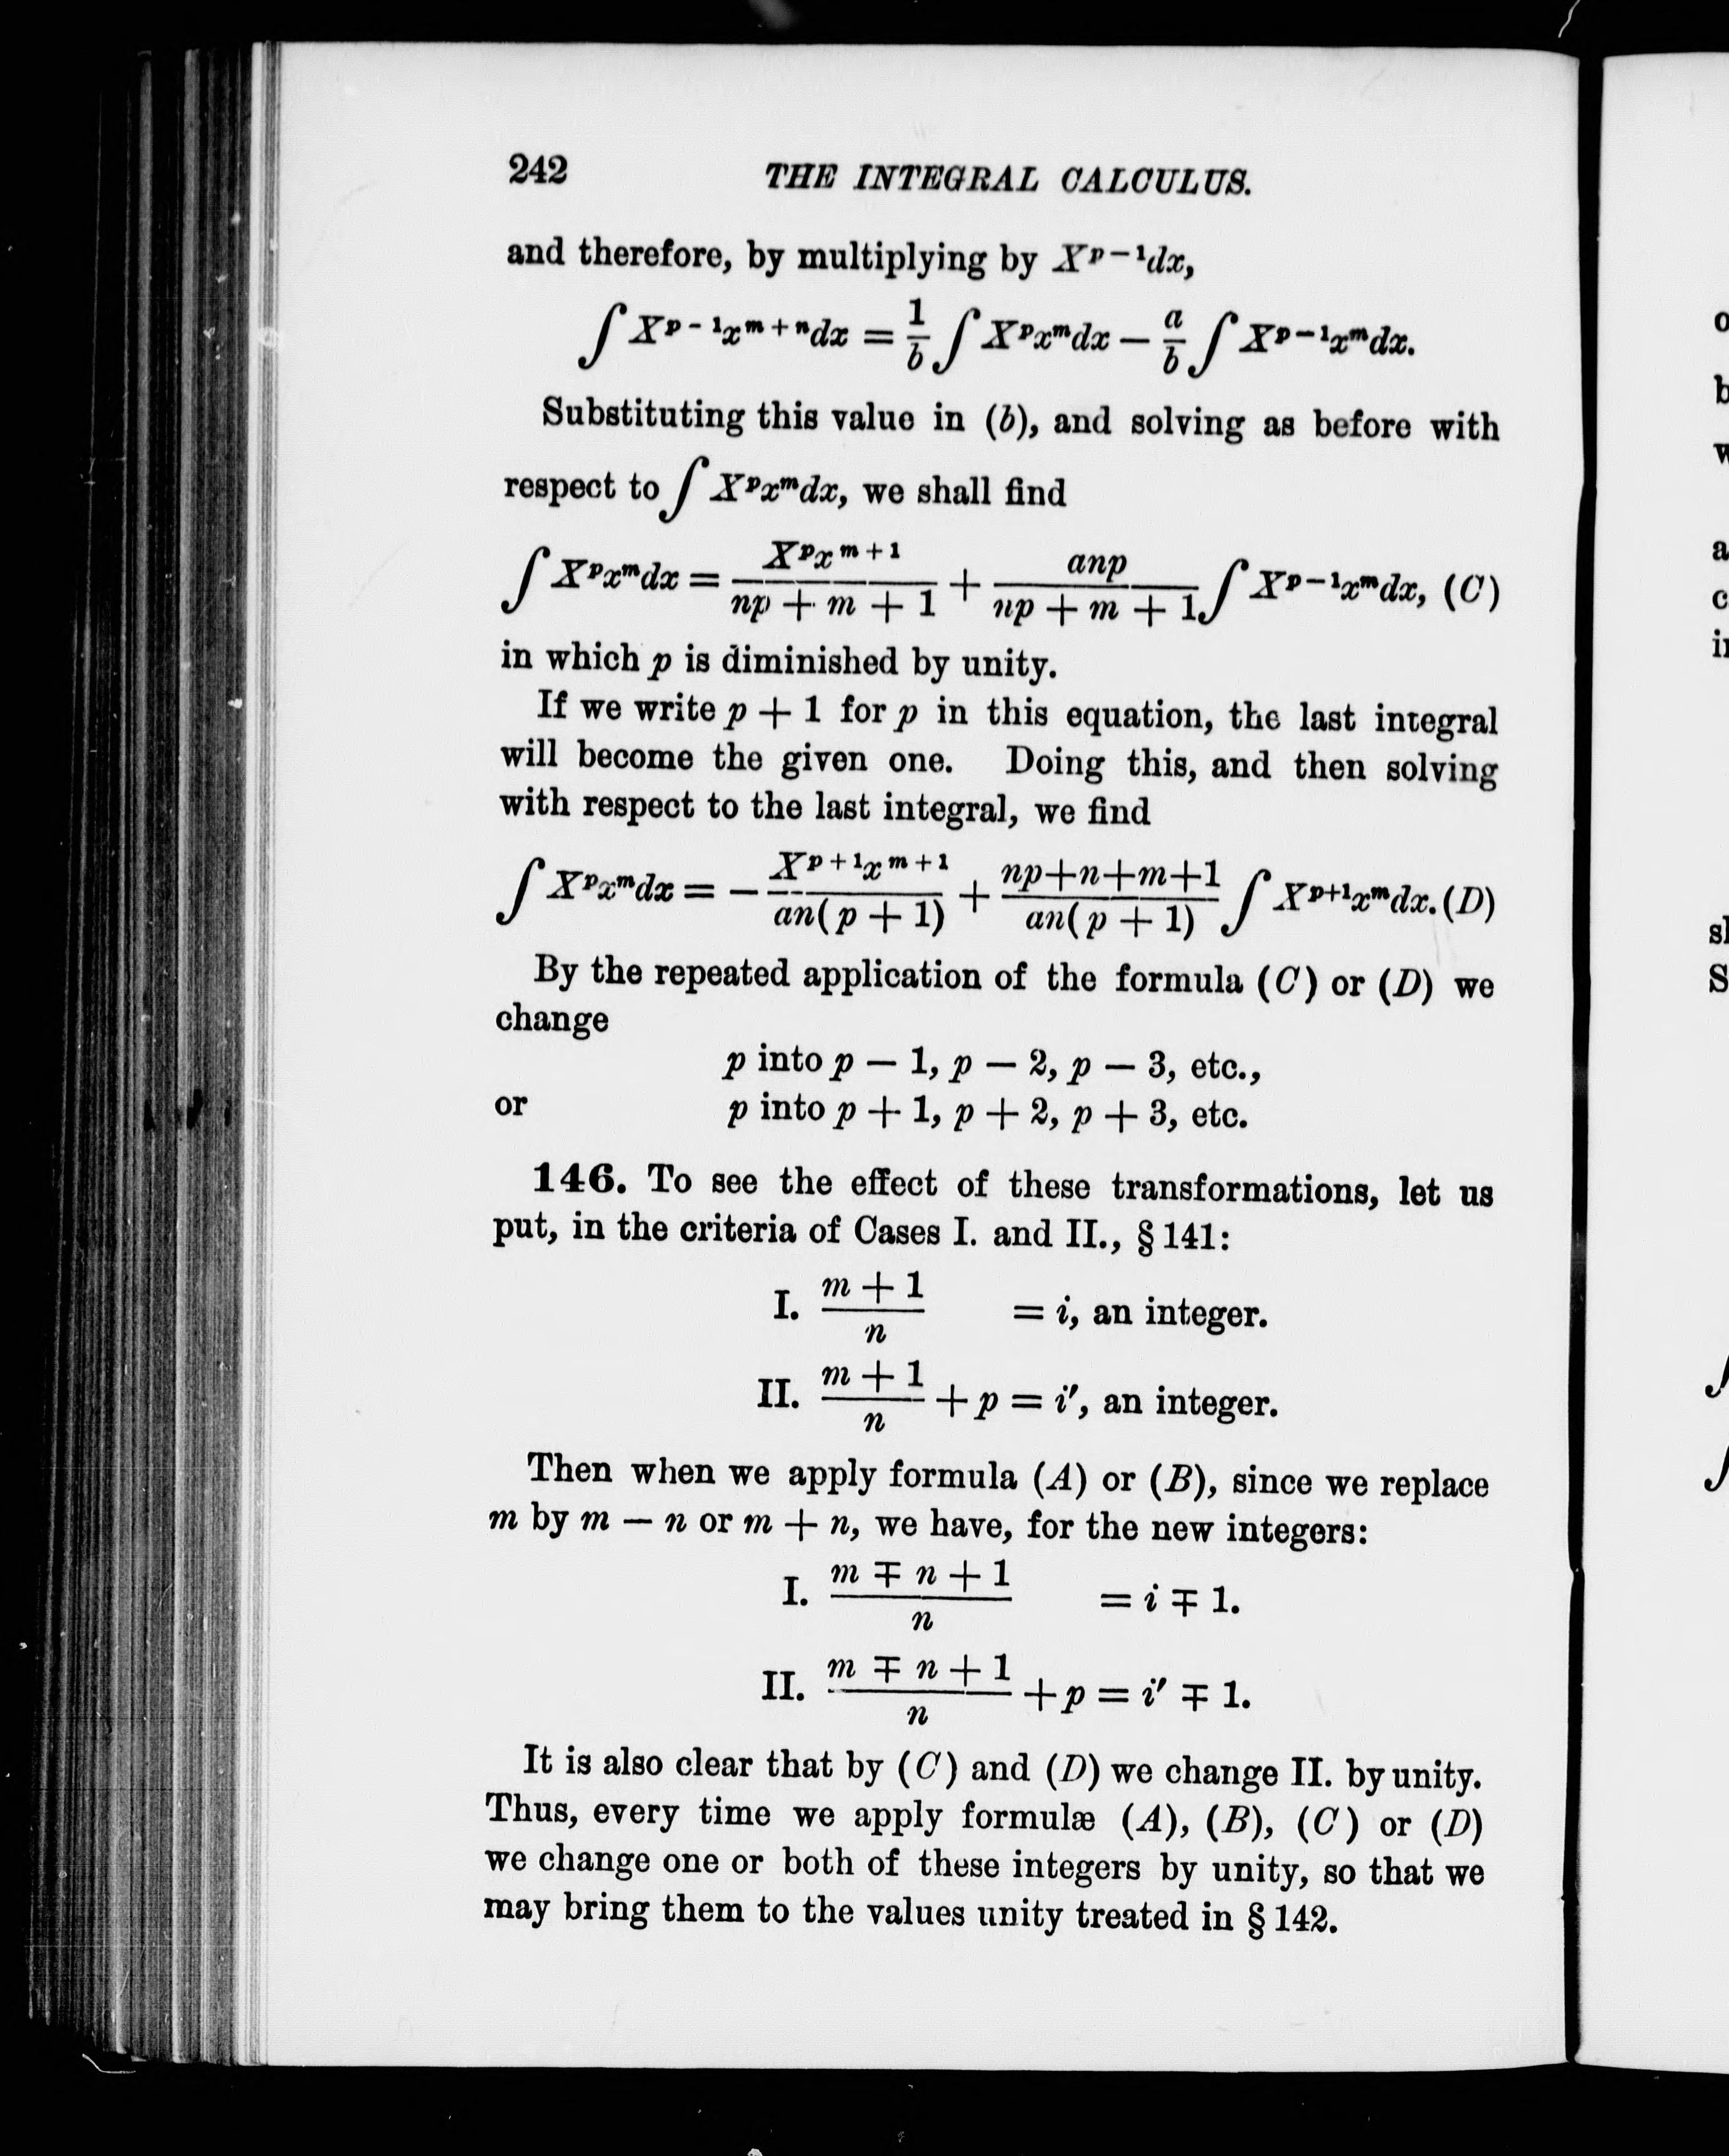 242 THE INTEGRAL CALCULUS.
and therefore, by multiplying by X^{p−1}dx,
∫ X^{p−1}x^{m+n}dx = 1/b ∫ X^p x^m dx − a/b ∫ X^{p−1}x^m dx.
Substituting this value in (b), and solving as before with
respect to ∫ X^p x^m dx, we shall find
∫ X^p x^m dx = X^p x^{m+1} / (np + m + 1) + anp / (np + m + 1) ∫ X^{p−1}x^m dx, (C)
in which p is diminished by unity.
If we write p + 1 for p in this equation, the last integral
will become the given one. Doing this, and then solving
with respect to the last integral, we find
∫ X^p x^m dx = − X^{p+1}x^{m+1} / an(p + 1) + (np+n+m+1) / an(p + 1) ∫ X^{p+1}x^m dx. (D)
By the repeated application of the formula (C) or (D) we
change
p into p − 1, p − 2, p − 3, etc.,
or p into p + 1, p + 2, p + 3, etc.
146. To see the effect of these transformations, let us
put, in the criteria of Cases I. and II., § 141:
I. (m + 1)/n = i, an integer.
II. (m + 1)/n + p = i′, an integer.
Then when we apply formula (A) or (B), since we replace
m by m − n or m + n, we have, for the new integers:
I. (m ∓ n + 1)/n = i ∓ 1.
II. (m ∓ n + 1)/n + p = i′ ∓ 1.
It is also clear that by (C) and (D) we change II. by unity.
Thus, every time we apply formulæ (A), (B), (C) or (D)
we change one or both of these integers by unity, so that we
may bring them to the values unity treated in § 142.